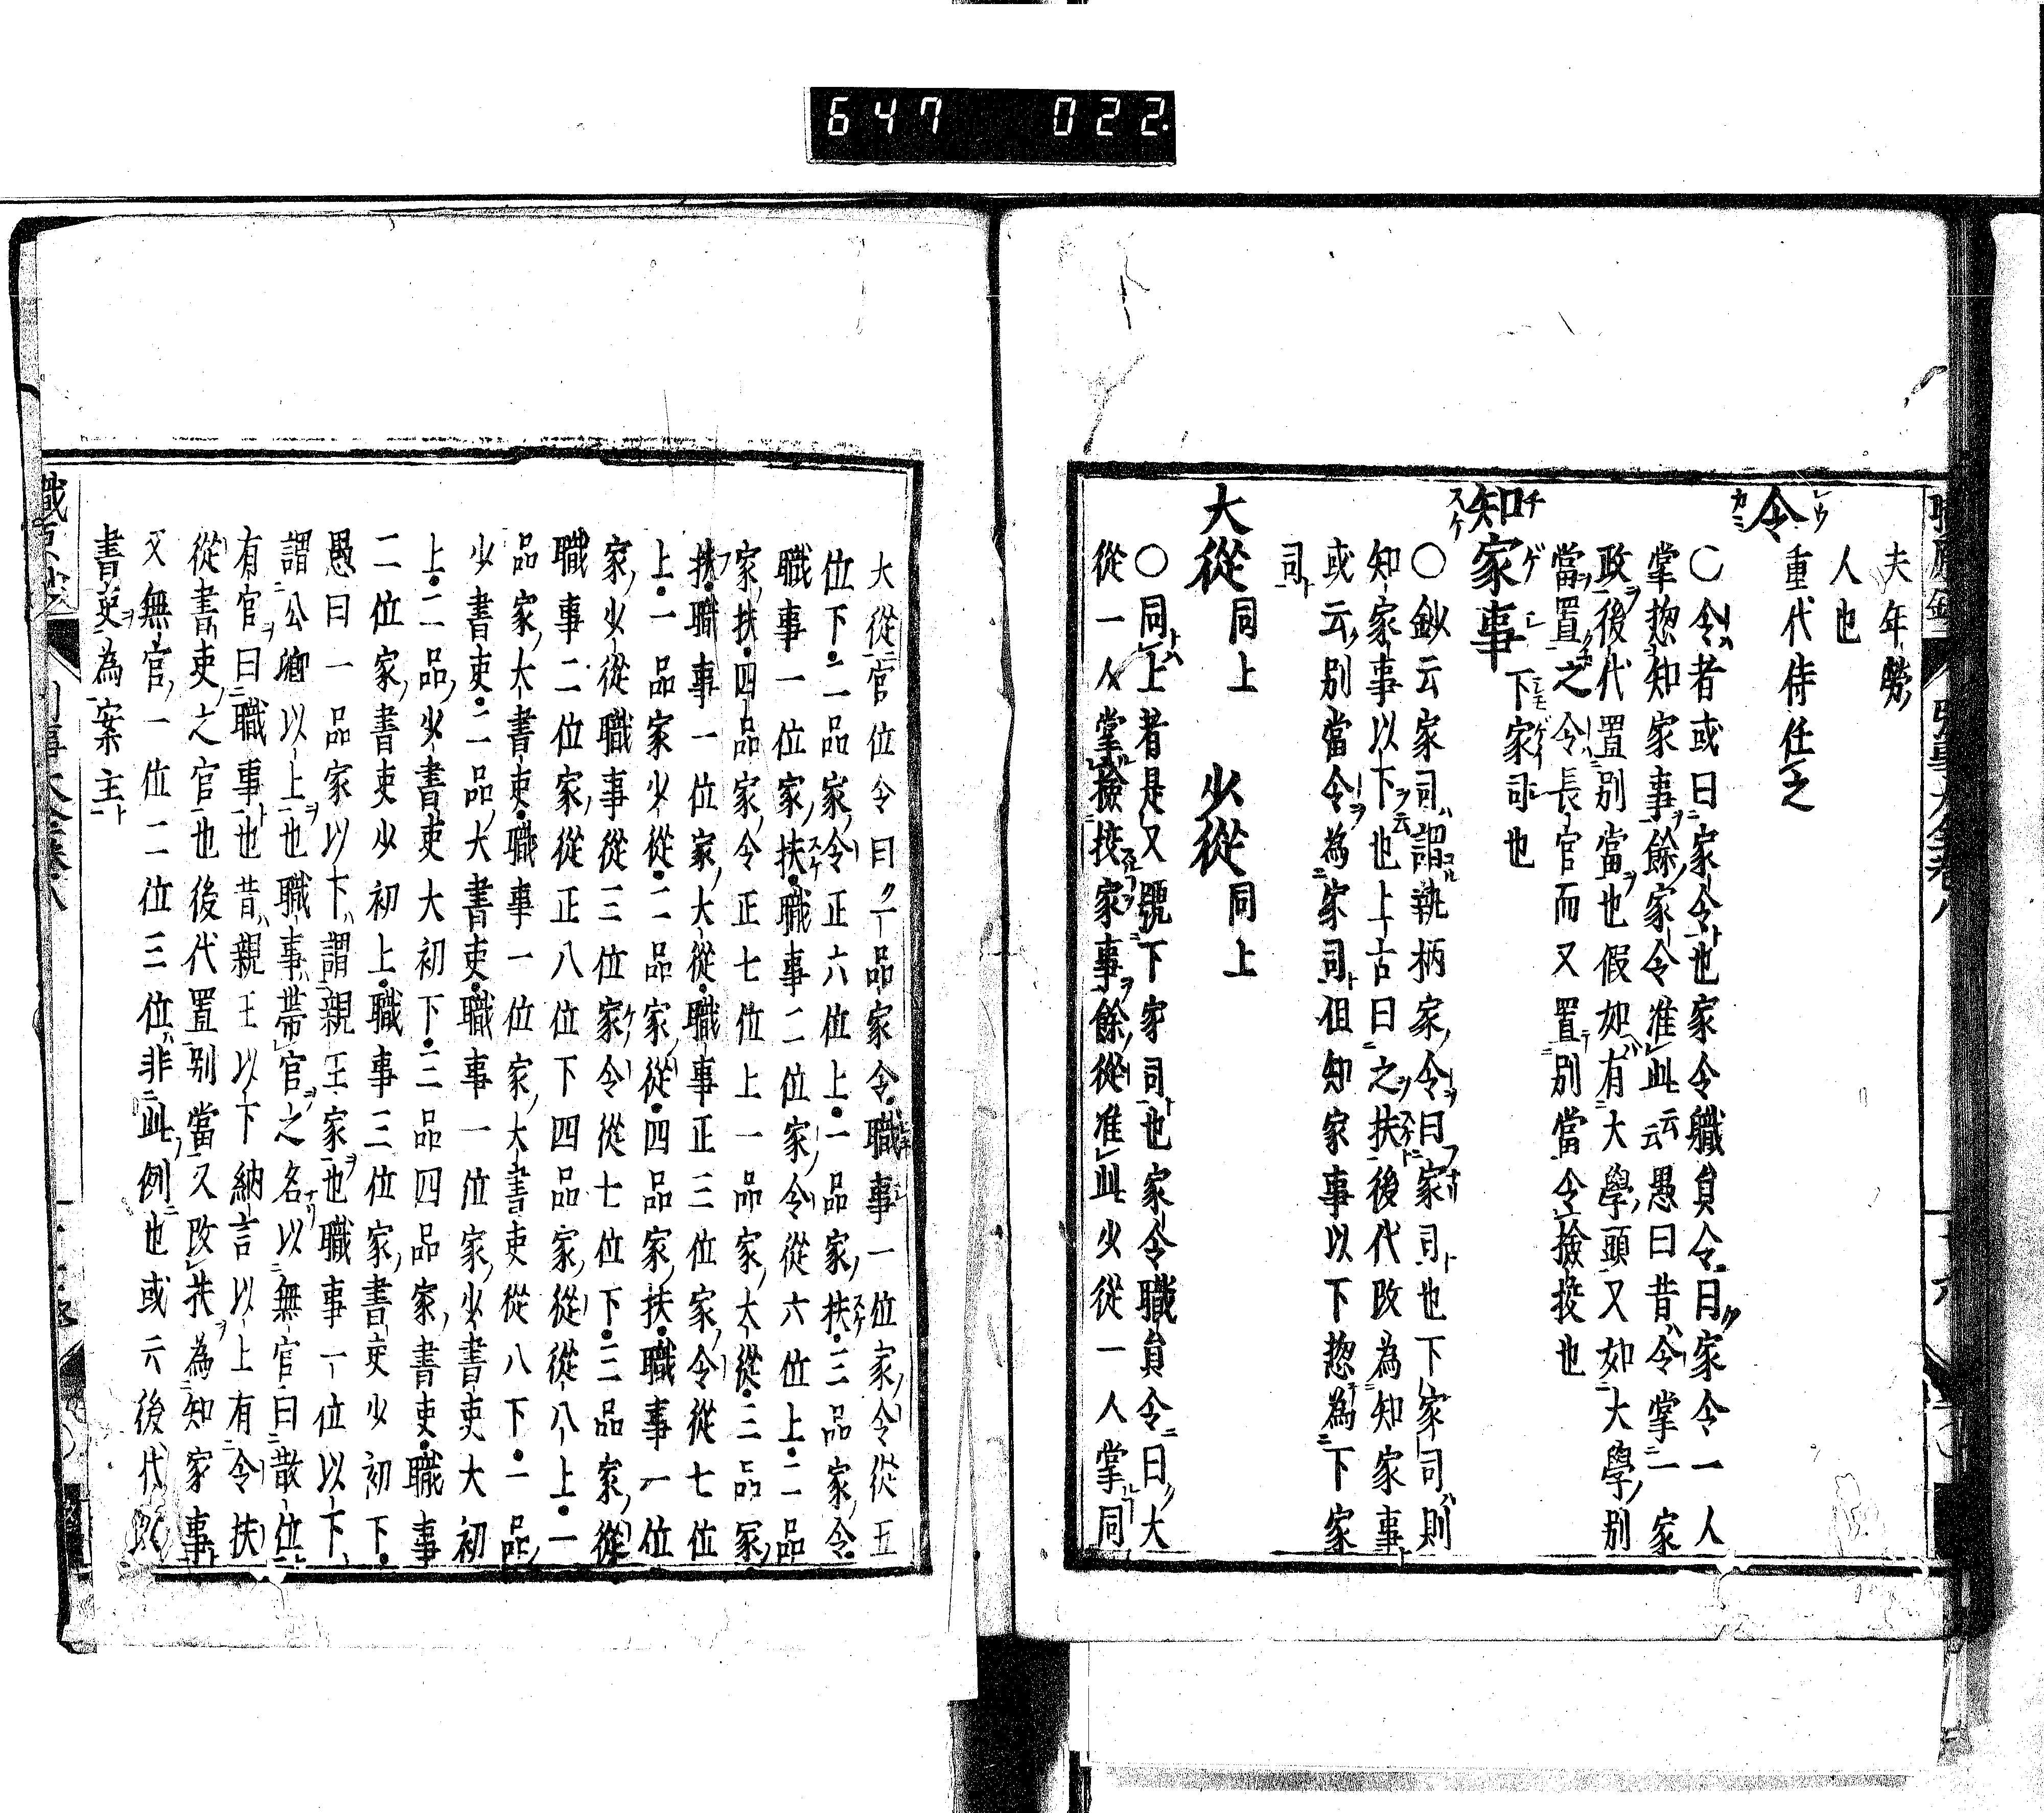 647 022
夫年勞
人也
令 重代侍任之
○令者或曰家令也家令職員令曰家令一人
掌惣知家事餘家令准此云云愚曰昔令掌一家
政後代置別當也假如有大學頭又如大學別
當置之令長官而又置別當令撿挍也
知家事 下家司也
○鈔云家司謂執柄家令曰家司也下家司則
知家事以下也上古曰之扶後代改為知家事
或云別當令為家司但知家事以下惣為下家
司
大從同上 少從同上
○同上者是又號下家司也家令職員令曰大
從一人掌撿挍家事餘從准此少從一人掌同
大從官位令曰一品家令職事一位家令從五
位下二品家令正六位上一品家扶三品家令
職事一位家扶職事二位家令從六位上二品
家扶四品家令正七位上一品家大從三品家
扶職事一位家大從職事正三位家令從七位
上一品家少從二品家從四品家扶職事一位
家少從職事從三位家令從七位下三品家從
職事二位家從正八位下四品家從從八上一
品家大書吏職事一位家大書吏從八下一品
少書吏二品大書吏職事一位家少書吏大初
上二品少書吏大初下三品四品家書吏職事
二位家書吏少初上職事三位家書吏少初下
愚曰一品家以下謂親王家也職事一位以下
謂公卿以上也職事帶官之名以無官曰散位
有官曰職事也昔親王以下納言以上有令扶
從書吏之官也後代置別當又改扶為知家事
又無官一位二位三位非此例也或云後代改
書吏為案主